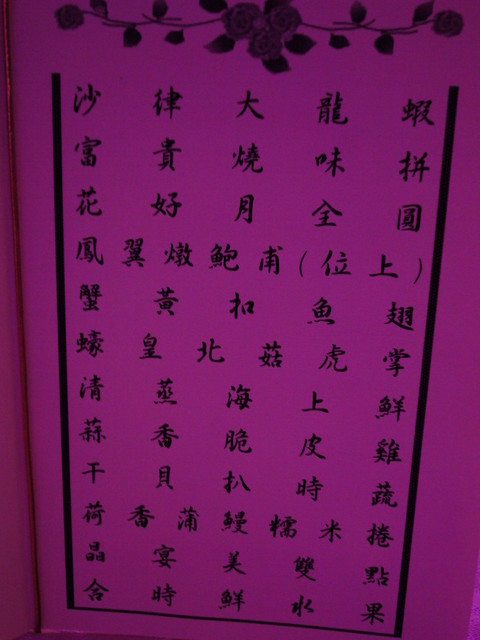 沙律大龍蝦
富貴燒味拼
花好月全圓
鳳翼燉鮑甫(位上)
蟹黃扣魚翅
蠔皇北菇虎掌
清蒸海上鮮
蒜香脆皮雞
干貝扒時蔬
荷香蒲鰻糯米捲
晶宴美雙點
合時鮮水果